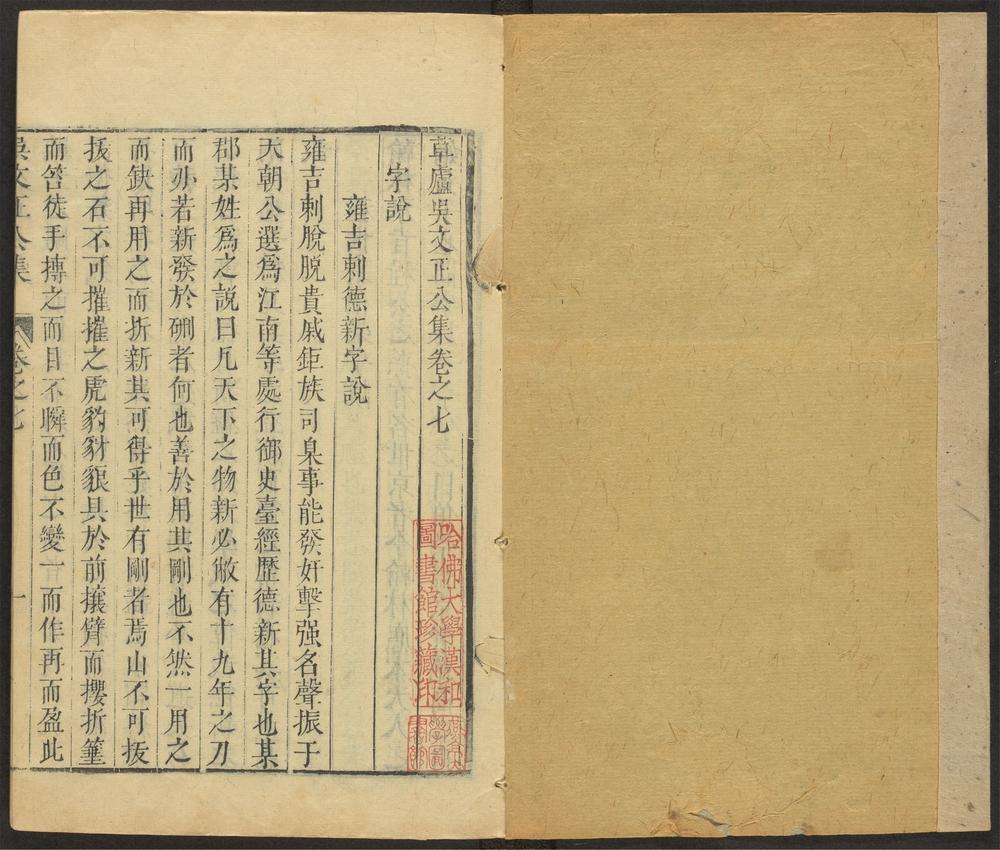 草廬吳文正公集卷之七
字說
雍吉剌德新字說
雍吉剌脫脫貴戚鉅族司臬事能發奸擊强名聲振于
天朝公選爲江南等處行御史臺經歷德新其字也某
郡某姓爲之說曰凡天下之物新必敝有十九年之刀
而刅若新發於硎者何也善於用其剛也不然一用之
而缺再用之而折新其可得乎世有剛者焉山不可拔
拔之石不可摧摧之虎豹豺貙具於前攘臂而攖折箠
而笞徒手摶之而目不瞬而色不變一而作再而盈此
吳文正公集
卷之七
一
哈佛大學漢和
圖書館珍藏印